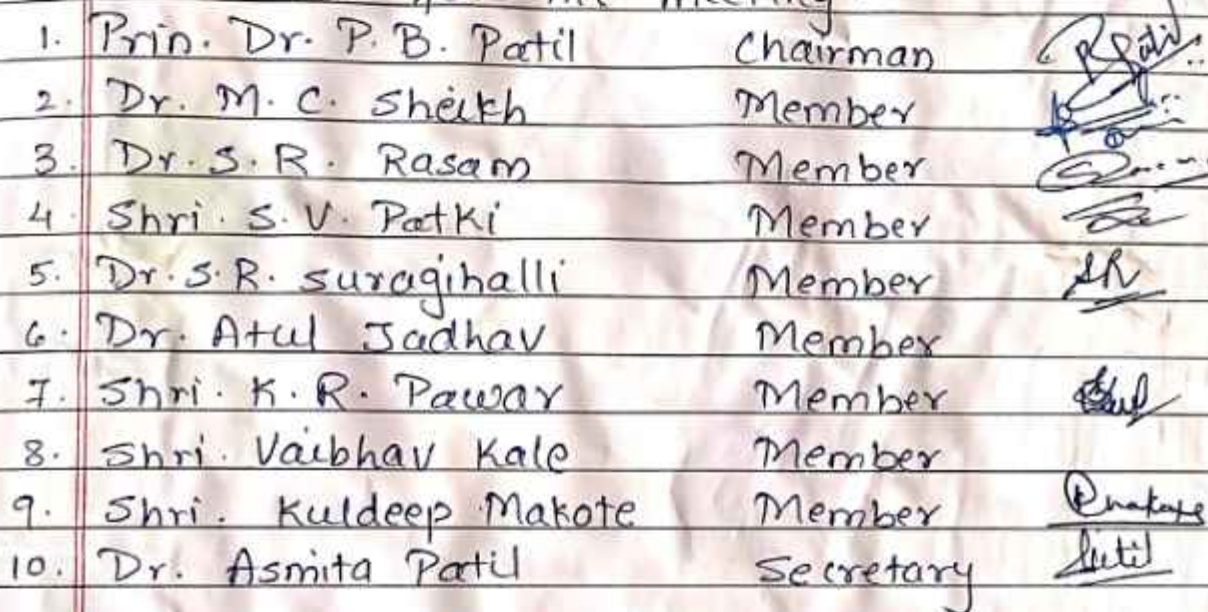 meeting
1. Prin. Dr. P. B. Patil Chairman
2. Dr. M. C. Sheikh Member
3. Dr. S. R. Rasam Member
4 Shri. S. V. Patki Member
5. Dr. S. R. Suragihalli Member SR
6. Dr. Atul Jadhav Member
7. Shri. K. R. Pawar Member
8. Shri. Vaibhav Kale Member
9. Shri. Kuldeep Makote Member
10. Dr. Asmita Patil Secretary